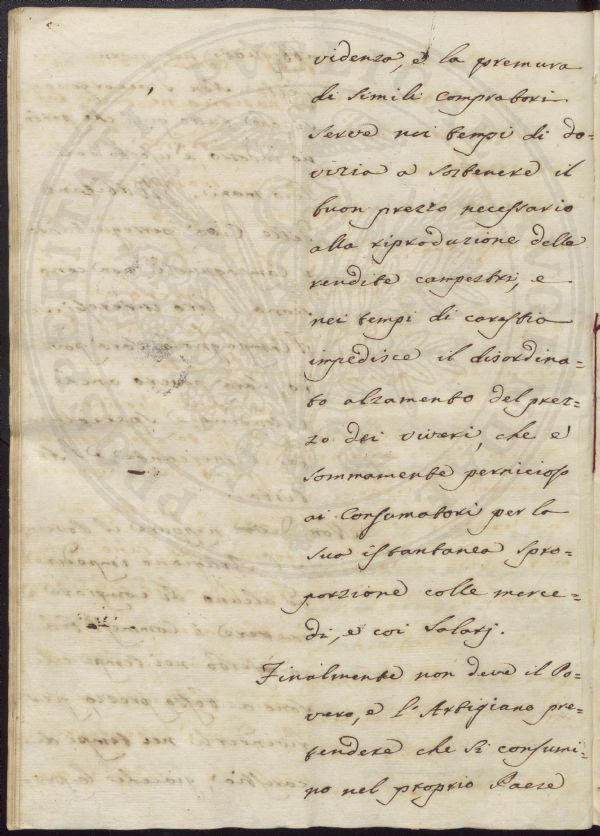 videnza, e la premura
di simili compratori
serve nei tempi di do=
vizia a sostenere il
buon prezzo necessario
alla riproduzione delle
rendite campestri, e
nei tempi di carestia
impedisce il disordina=
to alzamento del prez=
zo dei viveri, che è
sommamente pernicioso
ai Consumatori per la
sua istantanea spro=
porzione colle merce=
di, e coi Salarj.
Finalmente non deve il Po=
vero, e l'Artigiano pre=
tendere che si consumi=
no nel proprio Paese